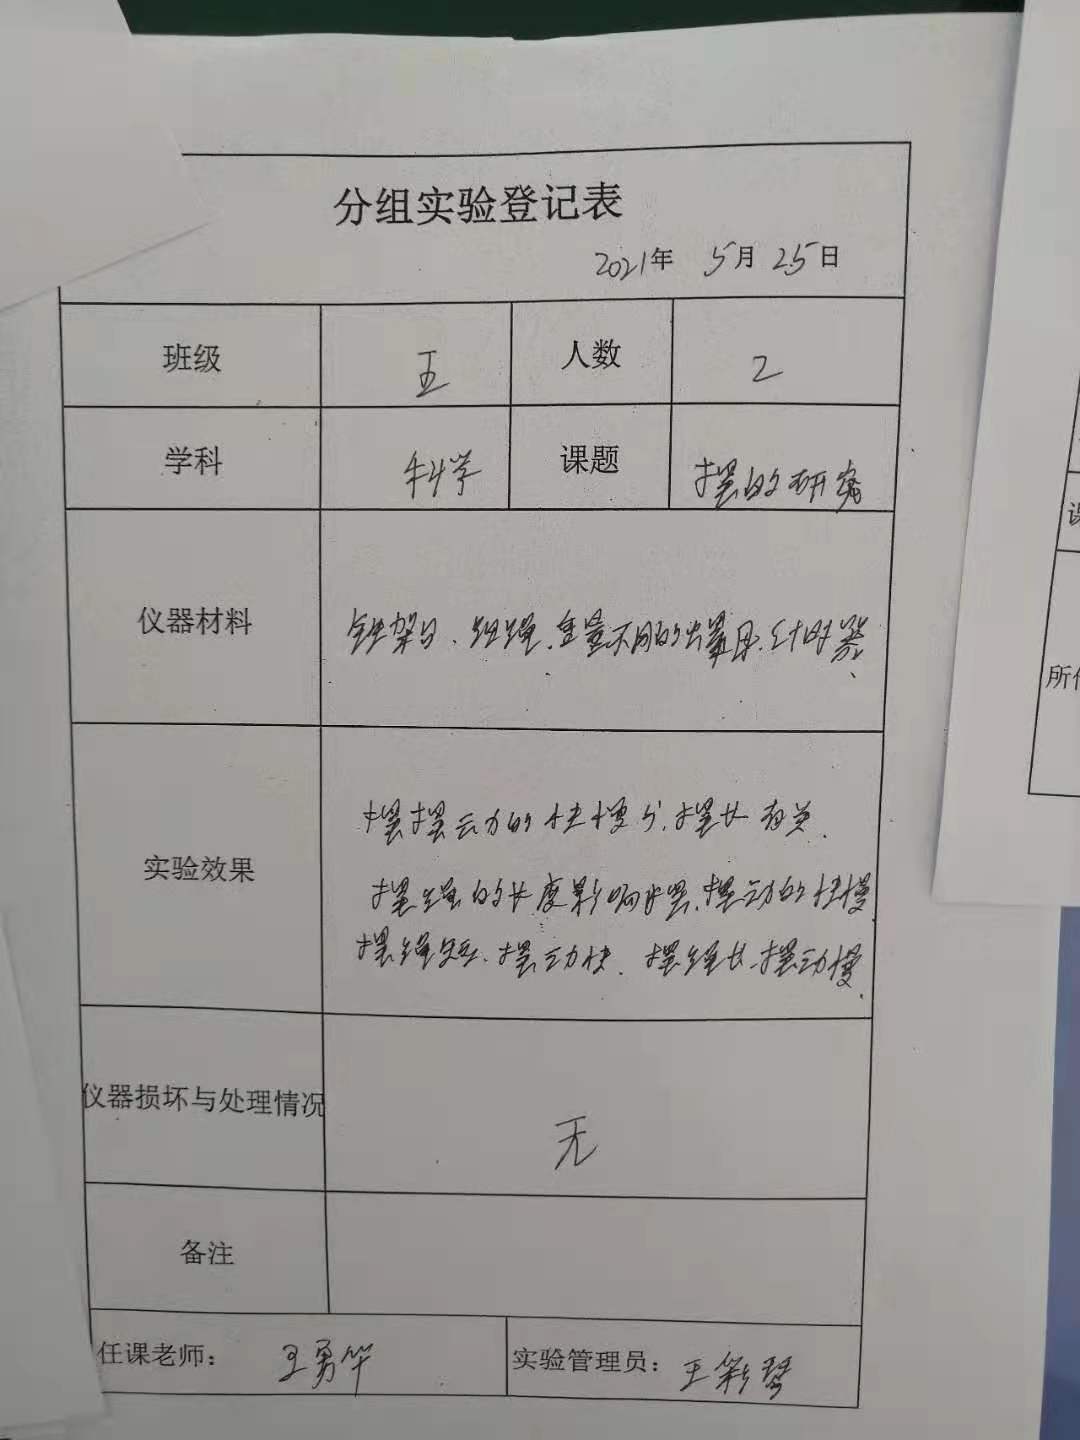 分组实验登记表
2021年 5月25日
班级 五 人数 2
学科 科学 课题 摆的研究
仪器材料 铁架台、细绳、重量不同的 计时器、
摆摆动的快慢与摆长有关.
实验效果 摆绳的长度影响摆、摆动的快慢
摆绳短、摆动快. 摆绳长、摆动慢.
仪器损坏与处理情况 无
备注
任课老师: 王勇华 实验管理员: 王彩琴
课
所